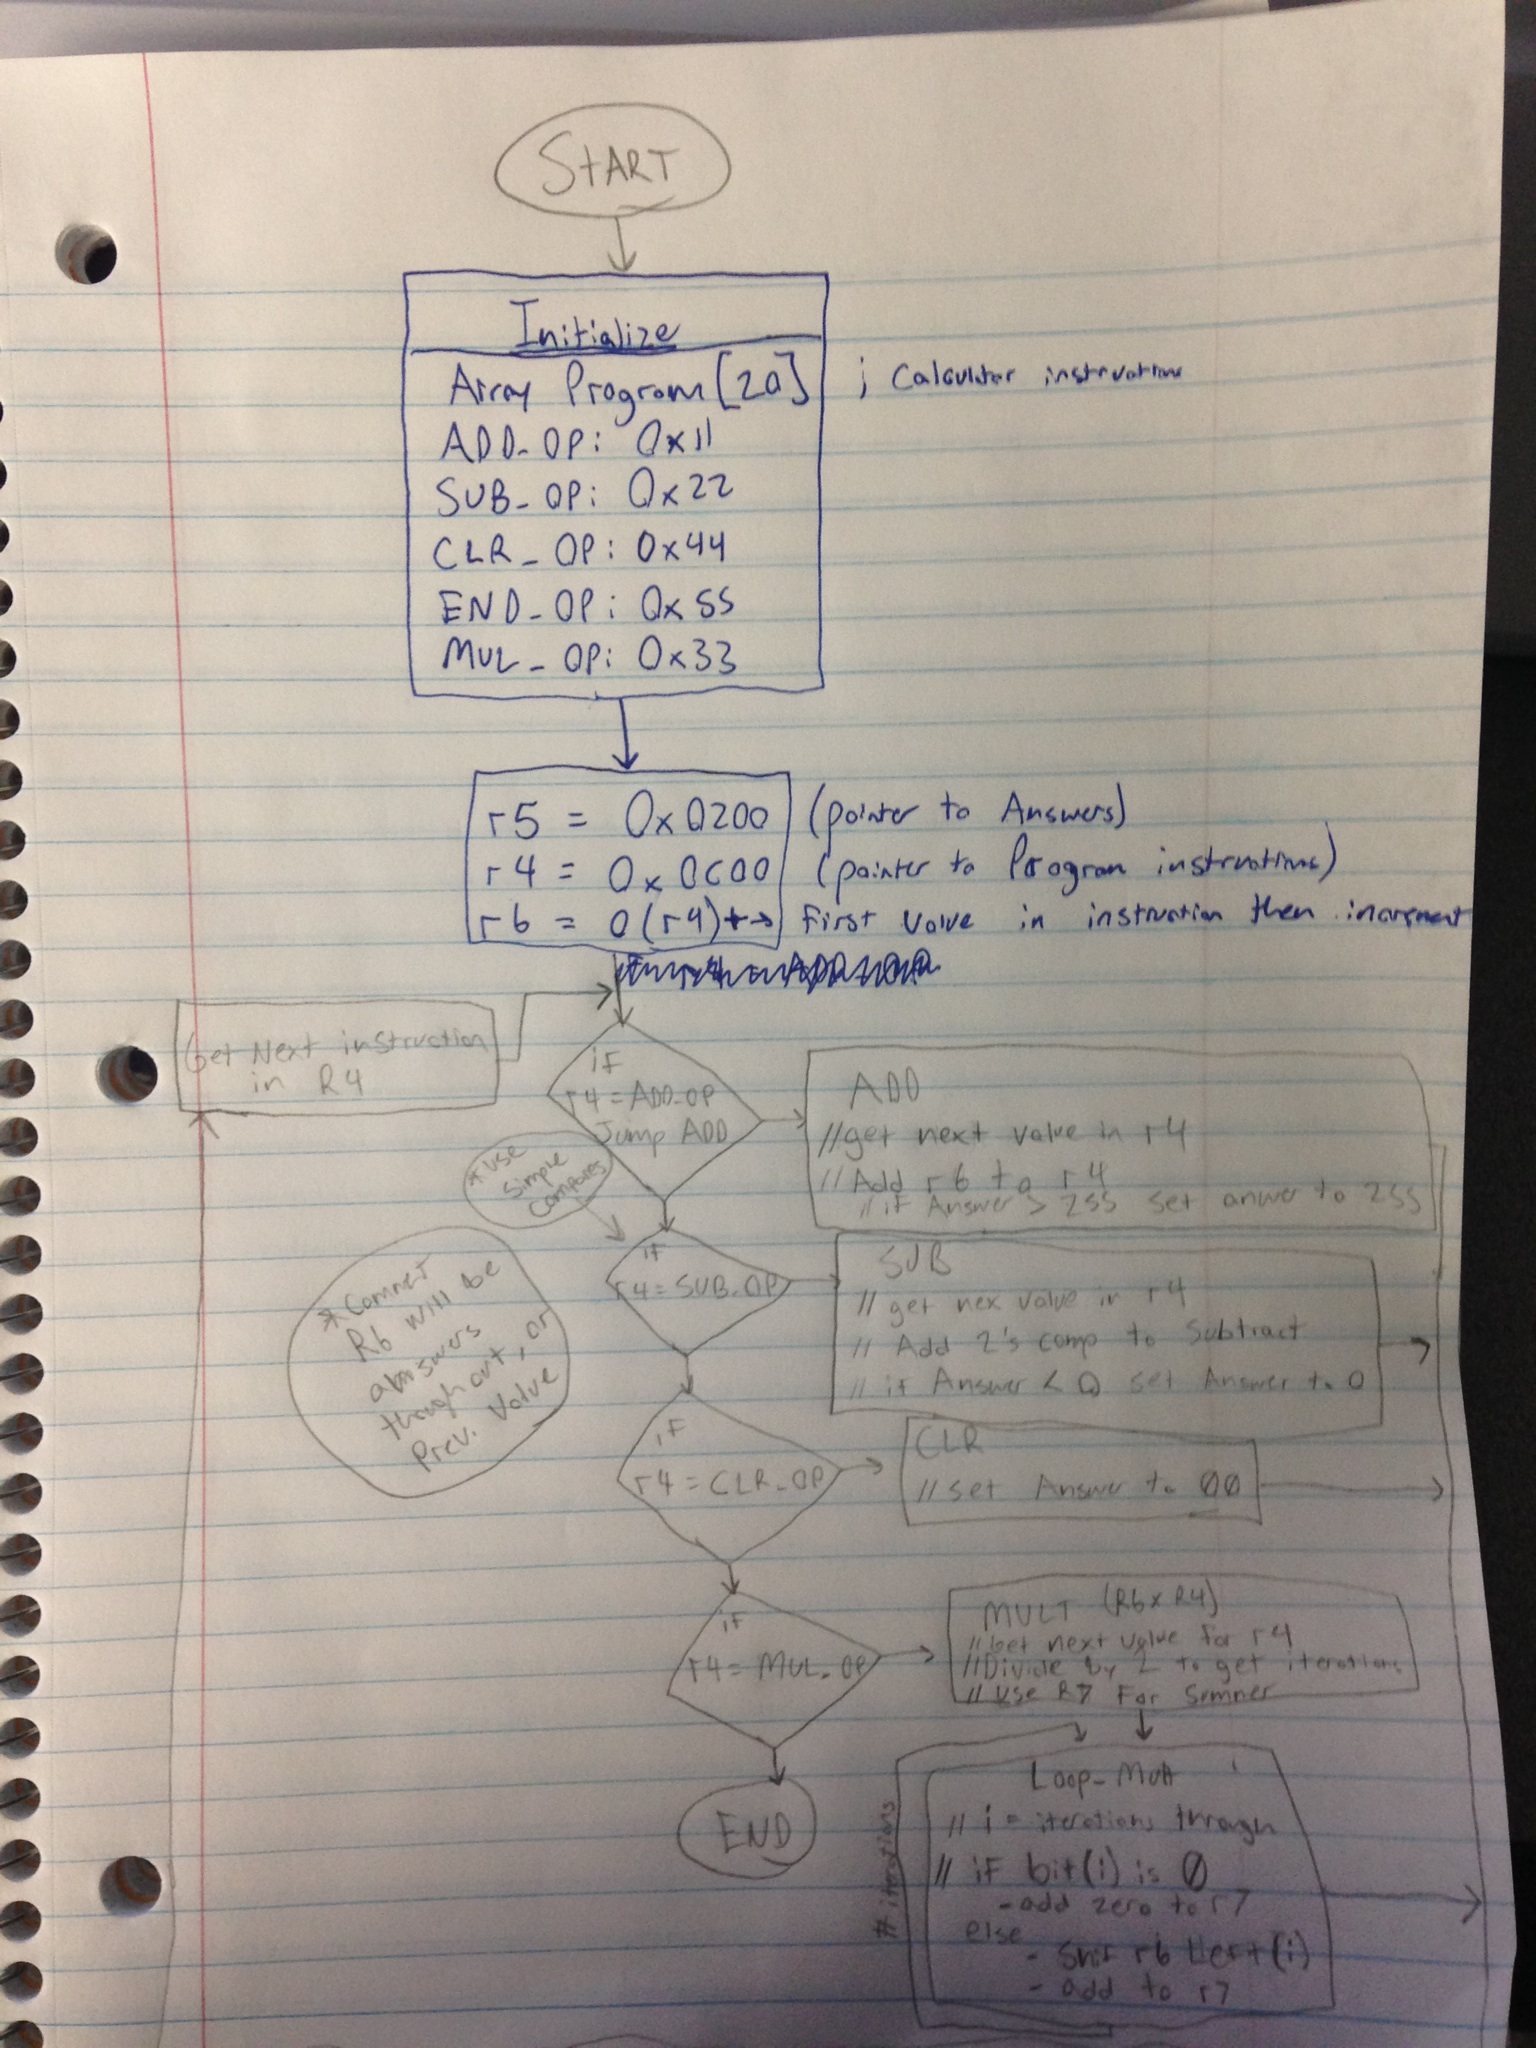 START
Initialize
Array Program [20] ; Calculator instructions
ADD_OP: 0x11
SUB_OP: 0x22
CLR_OP: 0x44
END_OP: 0x55
MUL_OP: 0x33
r5 = 0x0200 (pointer to Answers)
r4 = 0x0C00 (pointer to Program instructions)
r6 = 0(r4)+ → First value in instruction then increment
Get Next instruction
in R4
if
r4 = ADD_OP
Jump ADD
ADD
//get next value in r4
//Add r6 to r4
//if Answer > 255 set anwer to 255
*use
simple
compares
if
r4 = SUB_OP
SUB
// get nex value in r4
// Add 2's comp to subtract
// if Answer < 0 set Answer to 0
*Comment
R6 will be
answers
through out, or
Prev. Value
if
r4 = CLR_OP
CLR
//set Answer to 00
if
r4 = MUL_OP
MULT (R6 x R4)
//Get next value for r4
//Divide by 2 to get iterations
//Use R7 For
END
# iterations
Loop_Mult
// i = iterations through
// if bit(i) is 0
- add zero to r7
else
- r6 left (i)
- add to r7